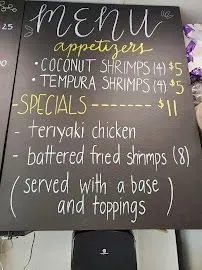 MENU
appetizers
• COCONUT SHRIMPS (4) $5
• TEMPURA SHRIMPS (4) $5
-SPECIALS ------- $11
- teriyaki chicken
- battered fried shrimps (8)
(served with a base
and toppings)